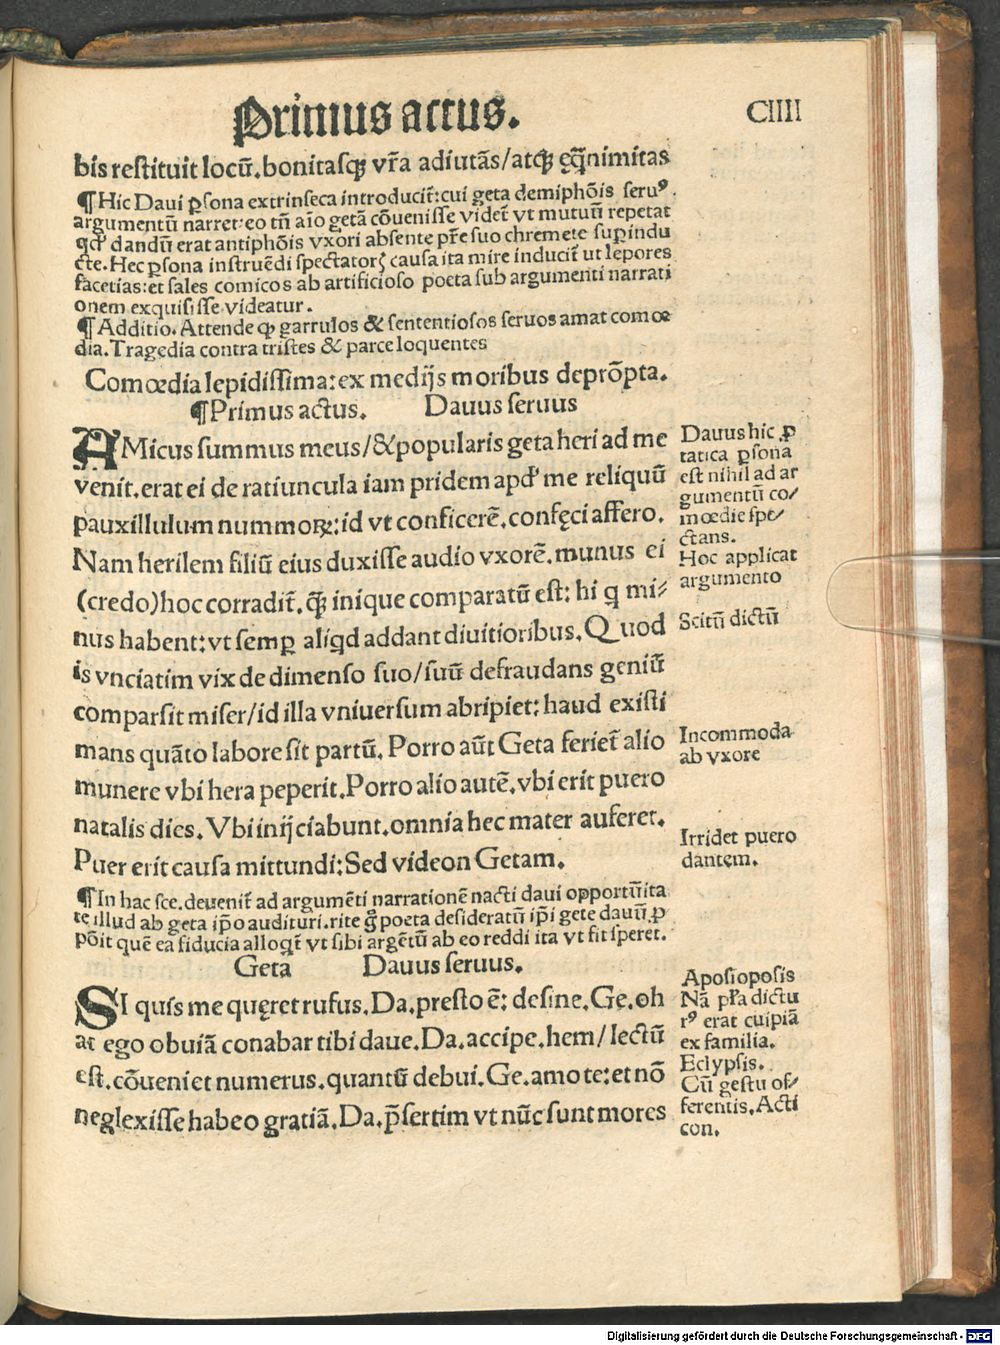 Primus actus.
CIIII
bis restituit locū. bonitasqꝫ vr̄a adiutās/atqꝫ ęq̄nimitas
¶Hic Daui ꝑsona extrinseca introducit̄: cui geta demiphōis seruꝰ
argumentū narret: eo tn̄ aīo getā cōuenisse videt̄ vt mutuū repetat
qd̓ dandū erat antiphōis vxori absente pr̄e suo chremete suꝑindu
cte. Hec ꝑsona instruēdi spectatoꝝ causa ita mire inducit̄ ut lepores
facetias: et sales comicos ab artificioso poeta sub argumenti narrati
onem exquisisse videatur.
¶Additio. Attende ꝙ garrulos & sententiosos seruos amat comœ
dia. Tragedia contra tristes & parce loquentes
Comœdia lepidissima: ex medijs moribus deprōpta.
¶Primus actus. Dauus seruus
AMicus summus meus/& popularis geta heri ad me
venit. erat ei de ratiuncula iam pridem apd̓ me reliquū
pauxillulum nummoꝝ: id vt conficerē. confęci affero.
Nam herilem filiū eius duxisse audio vxorē. munus ei
(credo) hoc corradit̄. q̄ꝫ inique comparatū est: hi q mi⸗
nus habent: vt semꝑ aliqd addant diuitioribus. Quod
is vnciatim vix de dimenso suo/suū defraudans geniū
comparsit miser/id illa vniuersum abripiet: haud existi
mans quāto labore sit partū. Porro aūt Geta feriet̄ alio
munere vbi hera peperit. Porro alio autē. vbi erit puero
natalis dies. Vbi inijciabunt. omnia hec mater auferet.
Puer erit causa mittundi: Sed videon Getam.
¶In hac sce. deuenit̄ ad argumēti narrationē nacti daui opportūita
te illud ab geta ip̄o audituri. rite g̊ poeta desideratū ip̄i gete dauū ꝑ
pōit quē ea fiducia alloqt̄ vt sibi argētū ab eo reddi ita vt fit speret.
Geta Dauus seruus.
SI quis me quęret rufus. Da. presto ē: desine. Ge. oh
at ego obuiā conabar tibi daue. Da. accipe. hem/lectū
est. cōueniet numerus. quantū debui. Ge. amo te: et nō
neglexisse habeo gratiā. Da. p̄sertim vt nūc sunt mores
Dauus hic ꝓ
tatica ꝑsona
est nihil ad ar
gumentū co⸗
mœdie spe⸗
ctans.
Hoc applicat
argumento
Scitū dictū
Incommoda
ab vxore
Irridet puero
dantem.
Aposioposis
Nā pr̄a dictu
rꝰ erat cuipiā
ex familia.
Eclypsis.
Cū gestu of⸗
ferentis, Acti
con.
Digitalisierung gefördert durch die Deutsche Forschungsgemeinschaft - DFG